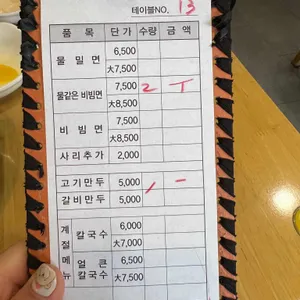 테이블NO. 13
품 목 단 가 수량 금 액
물 밀 면 6,500
大7,500
물같은 비빔면 7,500 2 T
大8,500
비 빔 면 7,500
大8,500
사 리 추 가 2,000
고 기 만 두 5,000 / -
갈 비 만 두 5,000
계절메뉴 칼국수 6,000
大7,000
얼큰칼국수 6,500
大7,500